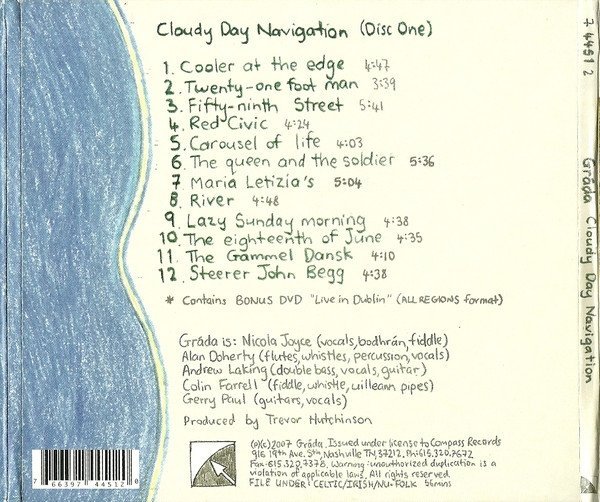 Cloudy Day Navigation (Disc One)
1. Cooler at the edge 4:47
2. Twenty-one foot man 3:39
3. Fifty-ninth Street 5:41
4. Red Civic 4:24
5. Carousel of life 4:03
6. The queen and the soldier 5:36
7 Maria Letizia's 5:04
8. River 4:48
9. Lazy Sunday morning 4:38
10. The eighteenth of June 4:35
11. The Gammel Dansk 4:10
12. Steerer John Begg 4:38
* Contains BONUS DVD "Live in Dublin" (ALL REGIONS format)
Gráda is: Nicola Joyce (vocals, bodhrán, fiddle)
Alan Doherty (flutes, whistles, percussion, vocals)
Andrew Laking (double bass, vocals, guitar)
Colin Farrell (fiddle, whistle, uilleann pipes)
Gerry Paul (guitars, vocals)
Produced by Trevor Hutchinson
(p)(c) 2007 Gráda. Issued under license to Compass Records
916 19th Ave. Sth, Nashville TN, 37212, Ph: 615.320.7672
Fax: 615.320.7378. Warning: unauthorized duplication is a
violation of applicable laws. All rights reserved.
FILE UNDER: CELTIC/IRISH/NU-FOLK 56mins
7 66397 44512 0
7 4451 2
Gráda Cloudy Day Navigation